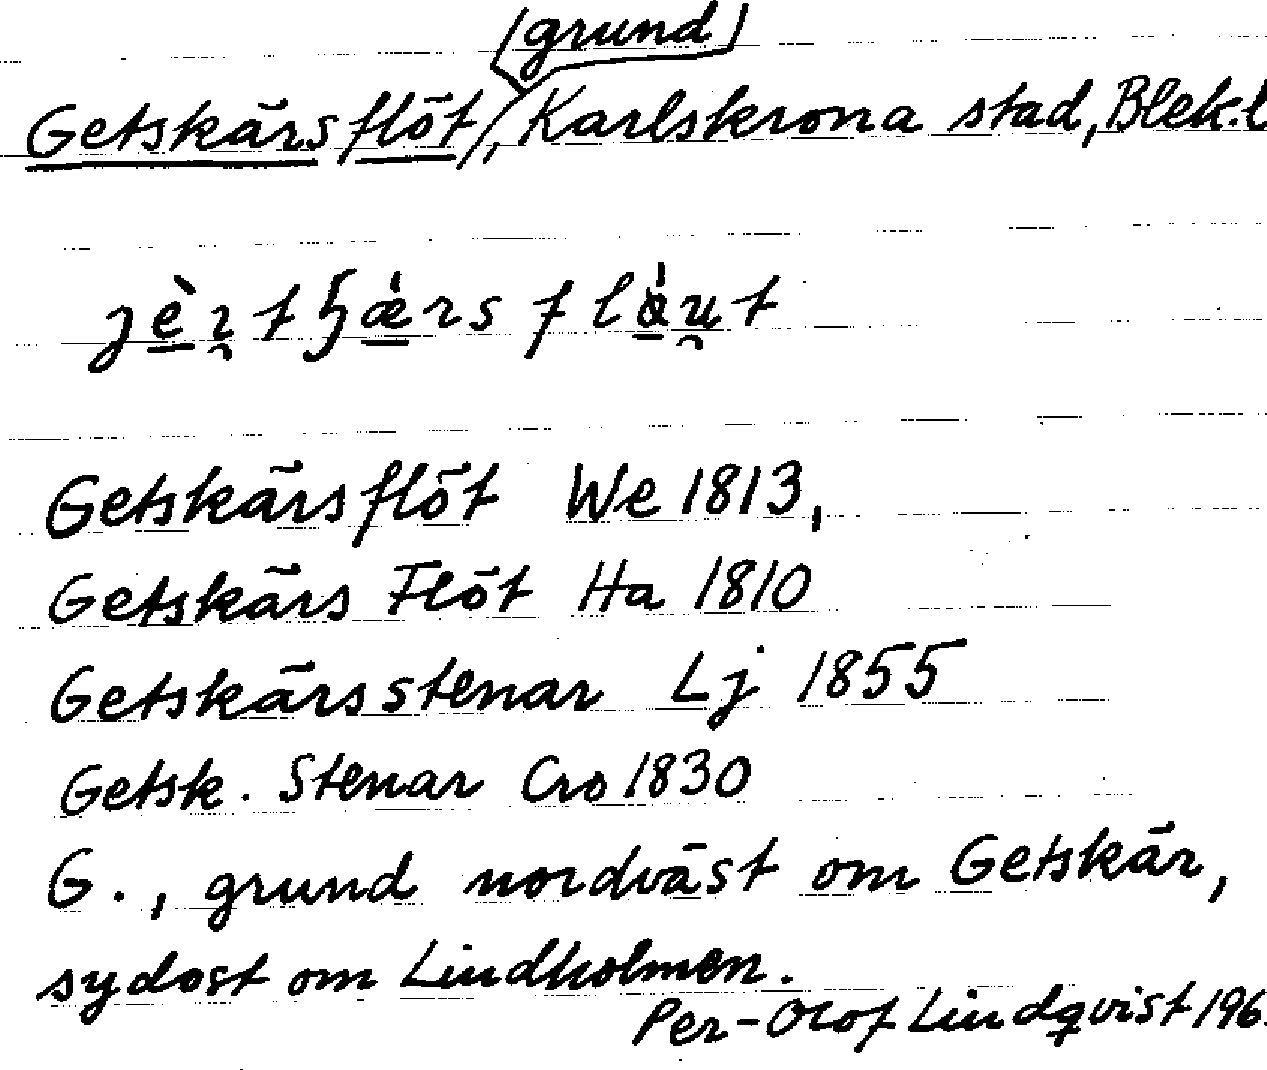 (grund)
Getskärsflöt/, Karlskrona stad, Blek.l
Getskärsflöt We 1813,
Getskärs Flöt Ha 1810
Getskärsstenar Lj 1855
Getsk. Stenar Cro 1830
G., grund nordväst om Getskär,
sydost om Lindholmen.
Per-Olof Lindqvist 196